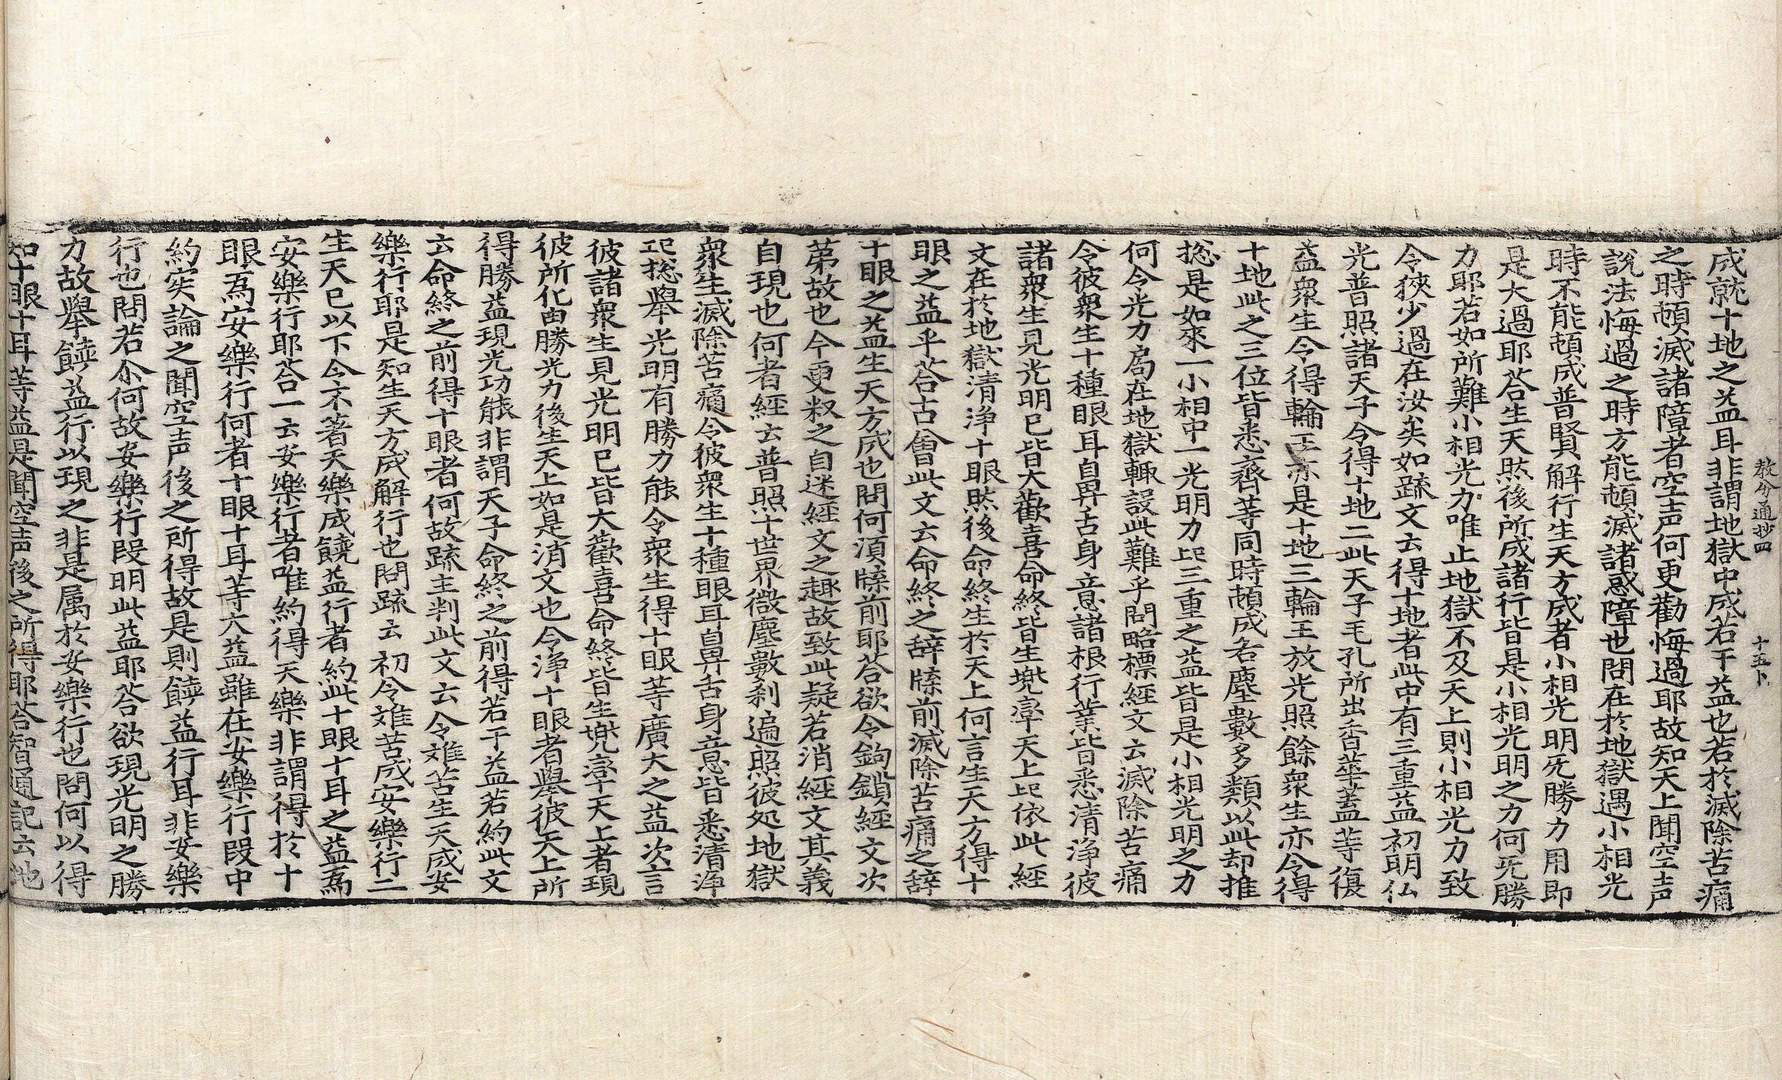 教分通抄四　十五卜
成就十地之益耳非謂地獄中成若干益也若於滅除苦痛
之時頓滅諸障者空声何更勸悔過耶故知天上聞空声
說法悔過之時方能頓滅諸惑障也問在於地獄遇小相光
時不能頓成普賢解行生天方成者小相光明旡勝力用即
是大過耶荅生天然後所成諸行皆是小相光明之力何旡勝
力耶若如所難小相光力唯止地獄不及天上則小相光力致
令狹少過在汝矣如䟽文云得十地者此中有三重益初明仏
光普照諸天子令得十地二此天子毛孔所出香華蓋䒭復
益衆生令得輪王亦是十地三輪王放光照餘衆生亦令得
十地此之三位皆悉齊䒭同時頓成各塵數多類以此却推
捴是如來一小相中一光明力此三重之益皆是小相光明之力
何令光力局在地獄輙設此難乎問略標經文云滅除苦痛
令彼衆生十種眼耳鼻舌身意諸根行業皆悉清淨彼
諸衆生見光明已皆大歡喜命終皆生兠率天上此依此經
文在於地獄清淨十眼然後命終生於天上何言生天方得十
眼之益乎荅古會此文云命終之辞牒前滅除苦痛之辞
十眼之益生天方成也問何湏牒前耶荅欲令鉤鎖經文次
苐故也今更敎之自迷經文之趣故致此疑若消經文其義
自現也何者經云普照十世界微塵數刹遍照彼処地獄
衆生滅除苦痛令彼衆生十種眼耳鼻舌身意皆悉清淨
此捴舉光明有勝力能令衆生得十眼䒭廣大之益次言
彼諸衆生見光明已皆大歡喜命終皆生兠率天上者現
彼所化由勝光力後生天上如是消文也令淨十眼者舉彼天上所
得勝益現光功能非謂天子命終之前得若干益若約此文
云命終之前得十眼者何故䟽主判此文云令難苦生天成安
樂行耶是知生天方成解行也問䟽云初令難苦成安樂行二
生天已以下令不著天樂成饒益行者約此十眼十耳之益為
安樂行耶荅一云安樂行者唯約得天樂非謂得於十
眼為安樂行何者十眼十耳䒭六益雖在安樂行叚中
約实論之聞空声後之所得故是則饒益行耳非安樂
行也問若尒何故安樂行叚明此益耶荅欲現光明之勝
力故舉饒益行以現之非是属於安樂行也問何以得
知十眼十耳䒭益是聞空声後之所得耶荅智通記云地